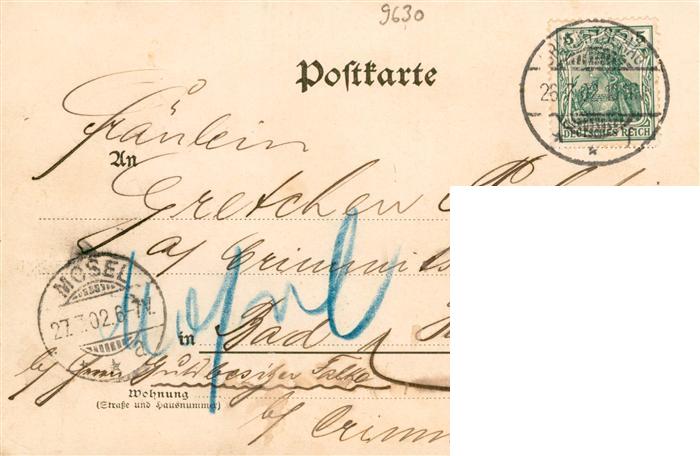 9630
5 5
DEUTSCHES REICH
26.7.02
Postkarte
Fräulein
An
Gretchen
a/ Crimmits
MOSEL
27.7.02.6-7N.
a
Mosel
in Bad
b/ Herrn Gutsbesitzer Falke
Wohnung
(Straße und Hausnummer)
b/ Crimm